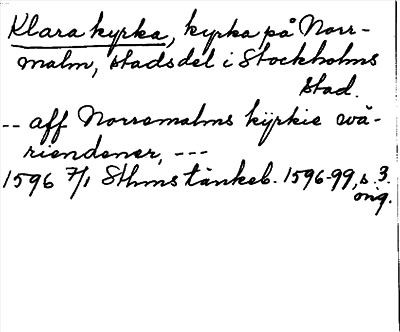 Klara kyrka, kyrka på Norr-
malm, stadsdel i Stockholms
stad.
-- aff Norremalms kÿrkie wä-
riendener, ---
1596 7/1 Sthms tänkeb. 1596-99, s. 3.
orig.